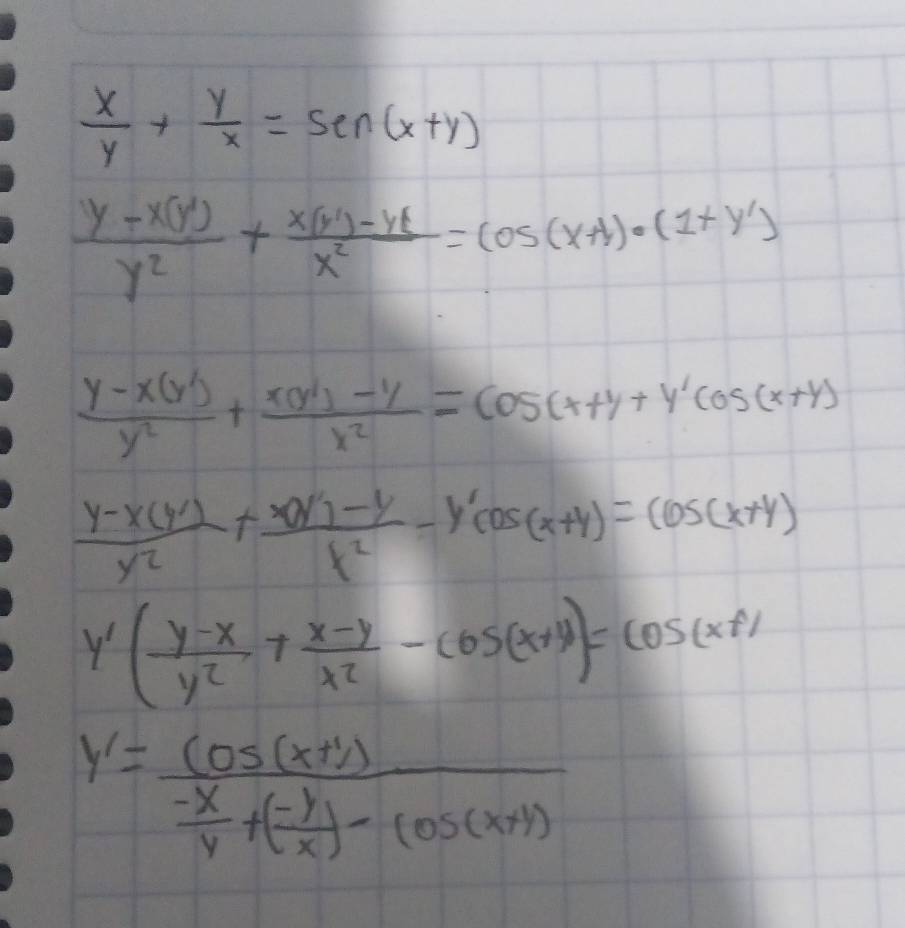 x/y + y/x = sen(x+y)
(y-x(y'))/y² + (x(y')-y)/x² = cos(x+y)·(1+y')
(y-x(y'))/y² + (x(y')-y)/x² = cos(x+y + y'cos(x+y)
(y-x(y'))/y² + (x(y')-y)/x² - y'cos(x+y) = cos(x+y)
y'((y-x)/y² + (x-y)/x² - cos(x+y)) = cos(x+y
y' = cos(x+y) / (-x/y + (-y/x) - cos(x+y))